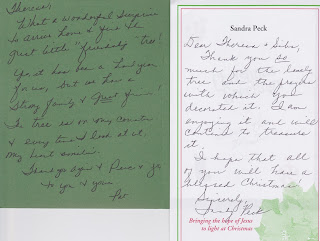 Theresa,
What a wonderful surprise
to arrive home & find the
great little "friendship" tree!
Yes it has been a hard year
for us, but we have a
strong family & great friends!
The tree is on my counter
& every time I look at it,
my heart smiles.
Thank you again & Peace & Joy
to you & yours
Pat
Sandra Peck
Dear Theresa &
Thank you so
much for the lovely
tree and the prayers
with which you
decorated it. I am
enjoying it and will
continue to treasure
it.
I hope that all
of you will have a
blessed Christmas.
Sincerely,
Peck
Bringing the hope of Jesus
to light at Christmas